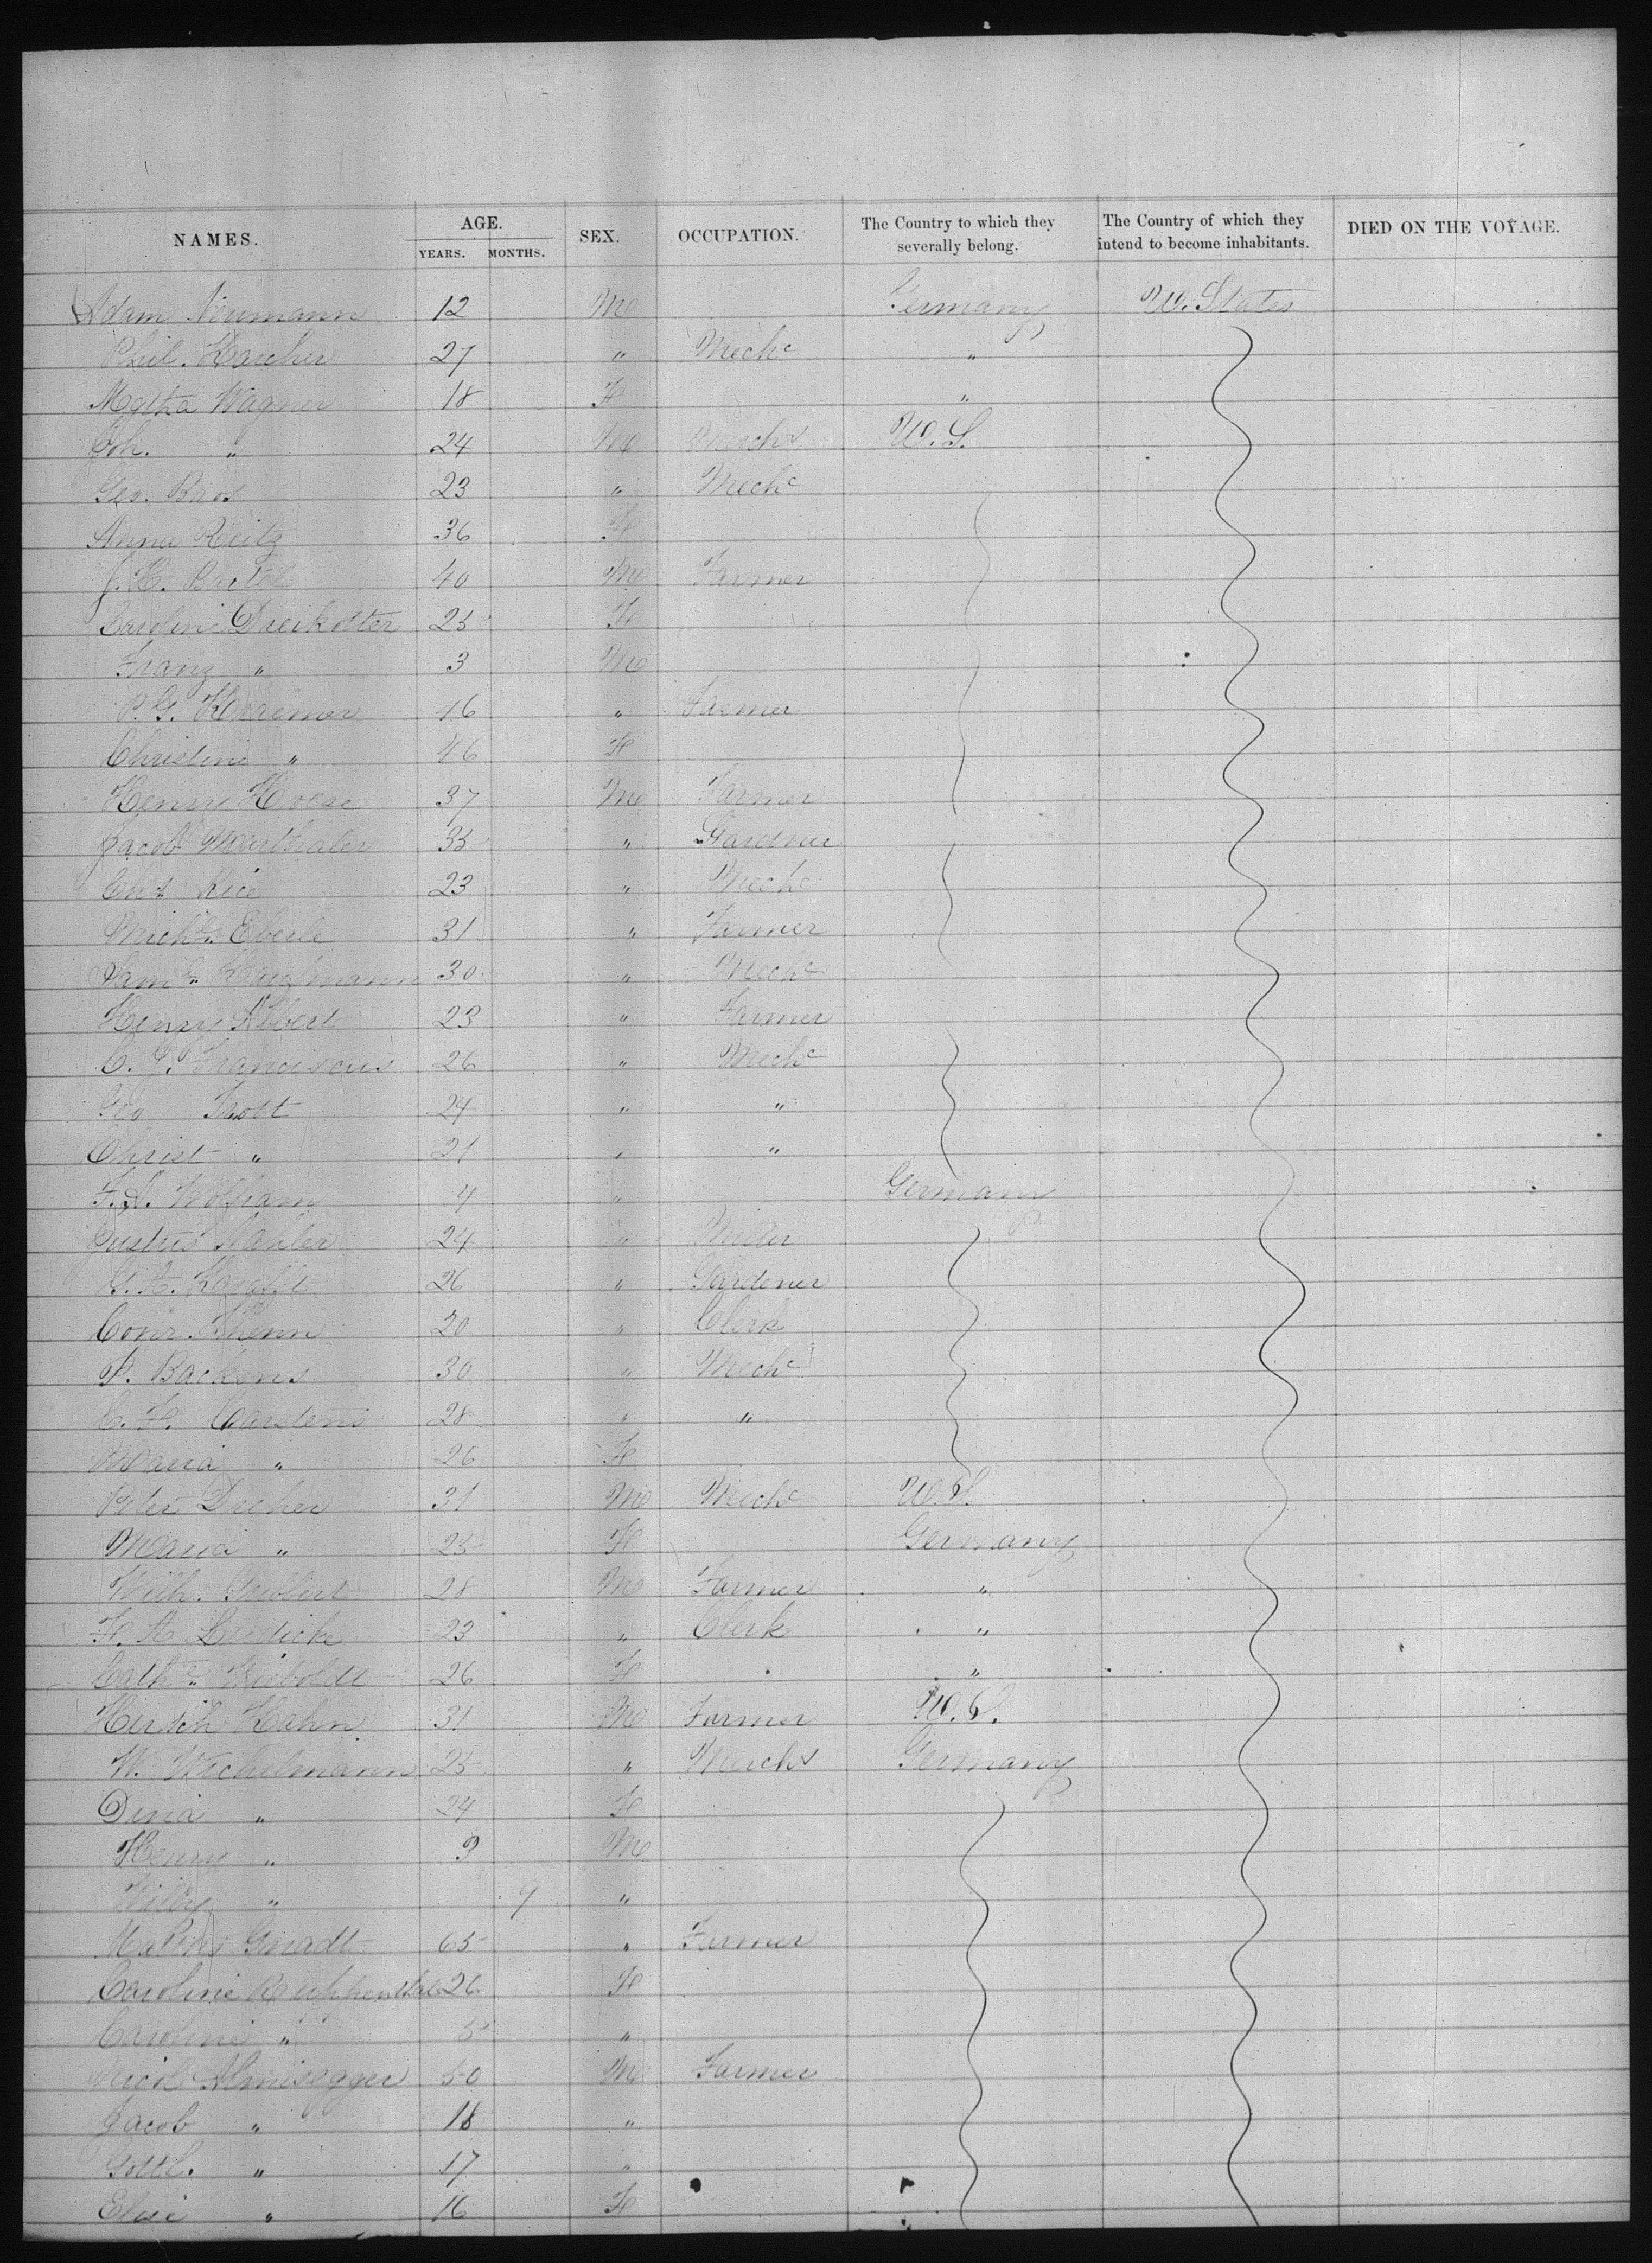 NAMES. AGE. SEX. OCCUPATION. The Country to which they severally belong. The Country of which they intend to become inhabitants. DIED ON THE VOYAGE.
YEARS. MONTHS.
Adam Neumann 12 M Germany U. States
Phil. Karcher 27 " Mechc "
Mgtha Wagner 18 F "
Joh. " 24 M Mercht U. S.
Geo. 23 " Mechc
Anna Reitz 36 F
J. H. 40 M Farmer
Caroline Dreikotter 25 F
Franz " 3 M
P. G. 46 " Farmer
Christine " 46 F
Henry 37 M Farmer
Jacob Marthaler 35 " Gardner
Chs 23 " Mechc
Michl. Eberle 31 " Farmer
Saml. Kaufmann 30 " Mechc
Henry Albert 23 " Farmer
C. Franciscus 26 " Mechc
Geo Trott 24 " "
Christ " 21 " "
F. A. Wolfram 4 " Germany
Justus Nahler 24 " Miller
26 " Gardener
Conr. 20 " Clerk
F. Backens 30 " Mechc
C. F. Carstens 28 " "
Maria " 26 F
Peter Dreher 31 M Mechc U. S.
Maria " 25 F Germany
Wilh. 28 M Farmer "
F. A. Luedicke 23 " Clerk "
Cathe. Wieboldt 26 F "
Hirsch Kahn 31 M Farmer U. S.
W. Wichelmann 25 " Mercht Germany
Dina " 24 F
Henry " 3 M
Willy " 9 "
Gnadt 65 " Farmer
Caroline Ruppenthal 26 F
Caroline " 5 "
Nicol Almisegger 50 M Farmer
Jacob " 18 "
Gottl. " 17 "
Elise " 16 F